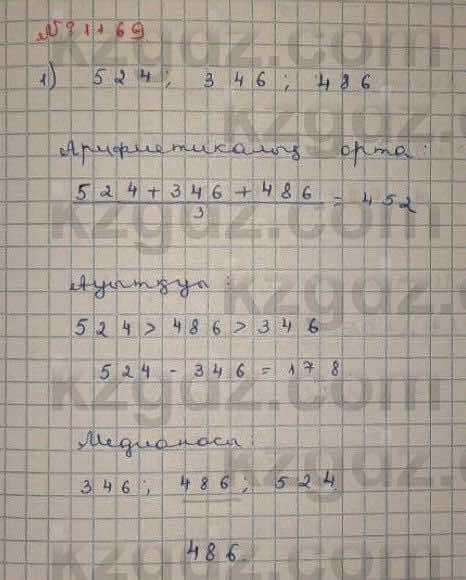 1) 524; 346; 486
Арифметикалық орта:
524+346+486
3
= 452
Ауытқуы:
524 > 486 > 346
524 - 346 = 178
Медианасы:
346; 486; 524
486.
kzgdz.com
kzgdz.com
kzgdz.com
kzgdz.com
kzgdz.com